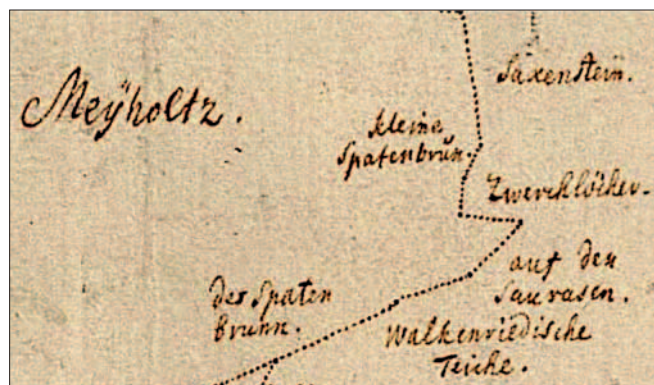 Saxenstein.
Meÿholtz.
kleine
Spatenbrūn.
Zwerchlöcher.
auf den
Saurasen.
der Spaten
brunn.
Walkenriedische
Teiche.